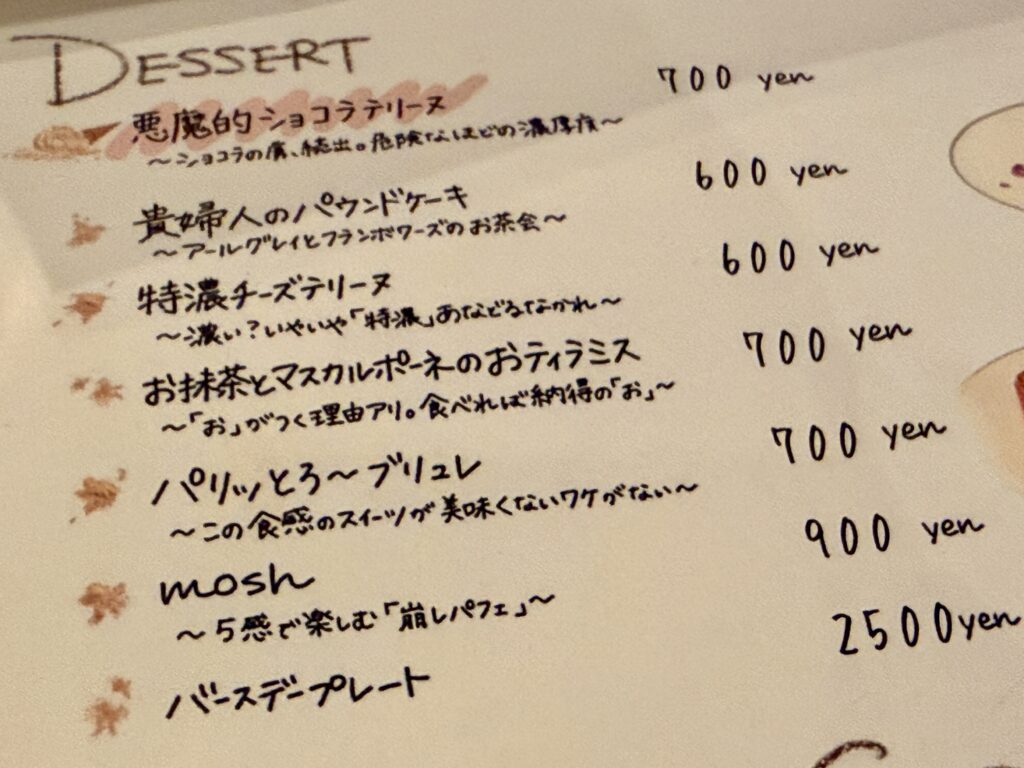 DESSERT
悪魔的ショコラテリーヌ 700 yen
～ショコラの虜、続出。危険なほどの濃厚度～
貴婦人のパウンドケーキ 600 yen
～アールグレイとフランボワーズのお茶会～
特濃チーズテリーヌ 600 yen
～濃い?いやいや「特濃」あなどるなかれ～
お抹茶とマスカルポーネのおティラミス 700 yen
～「お」がつく理由アリ。食べれば納得の「お」～
パリッとろ～ブリュレ 700 yen
～この食感のスイーツが美味くないワケがない～
mosh 900 yen
～5感で楽しむ「崩しパフェ」～
バースデープレート 2500yen